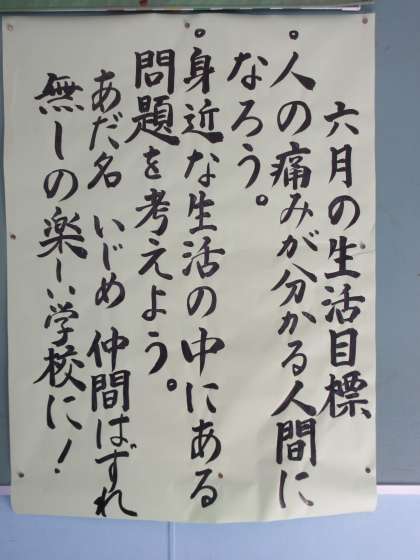 六月の生活目標
・人の痛みが分かる人間に
なろう。
・身近な生活の中にある
問題を考えよう。
あだ名 いじめ 仲間はずれ
無しの楽しい学校に!